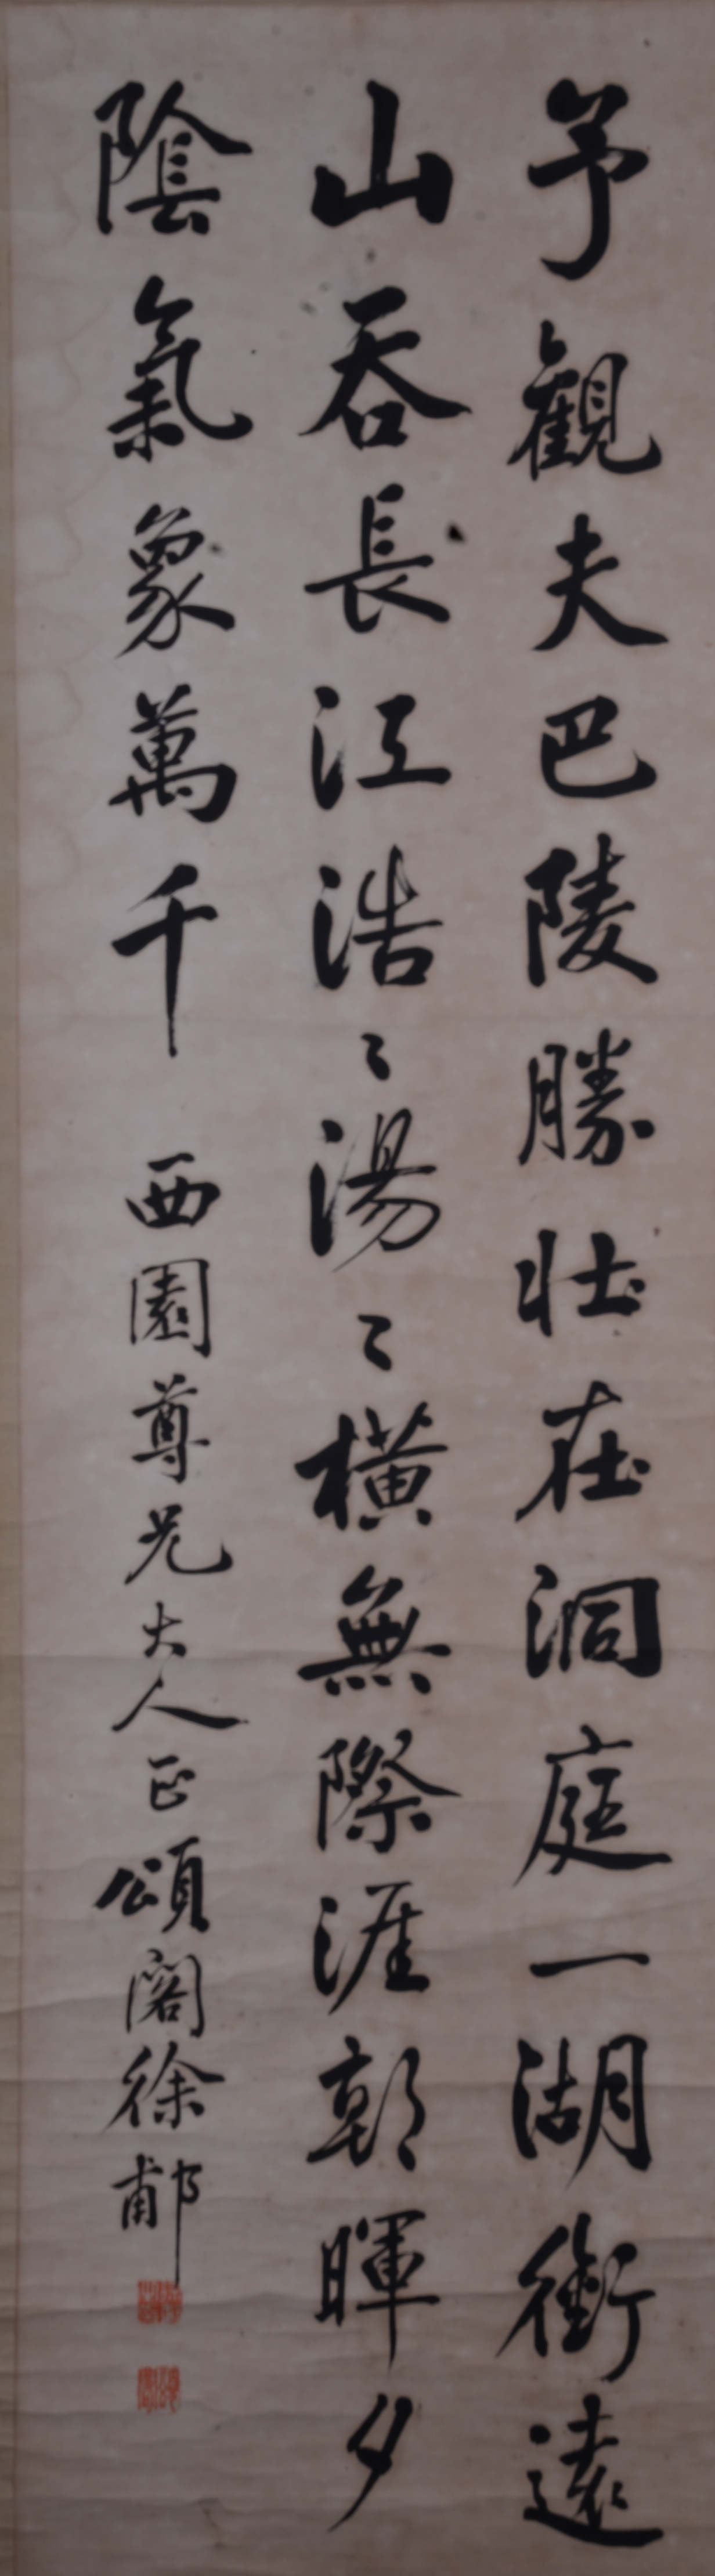 予觀夫巴陵勝壯在洞庭一湖銜遠
山吞長江浩〻湯〻橫無際涯朝暉夕
陰氣象萬千 西園尊兄大人正頌閣徐郙